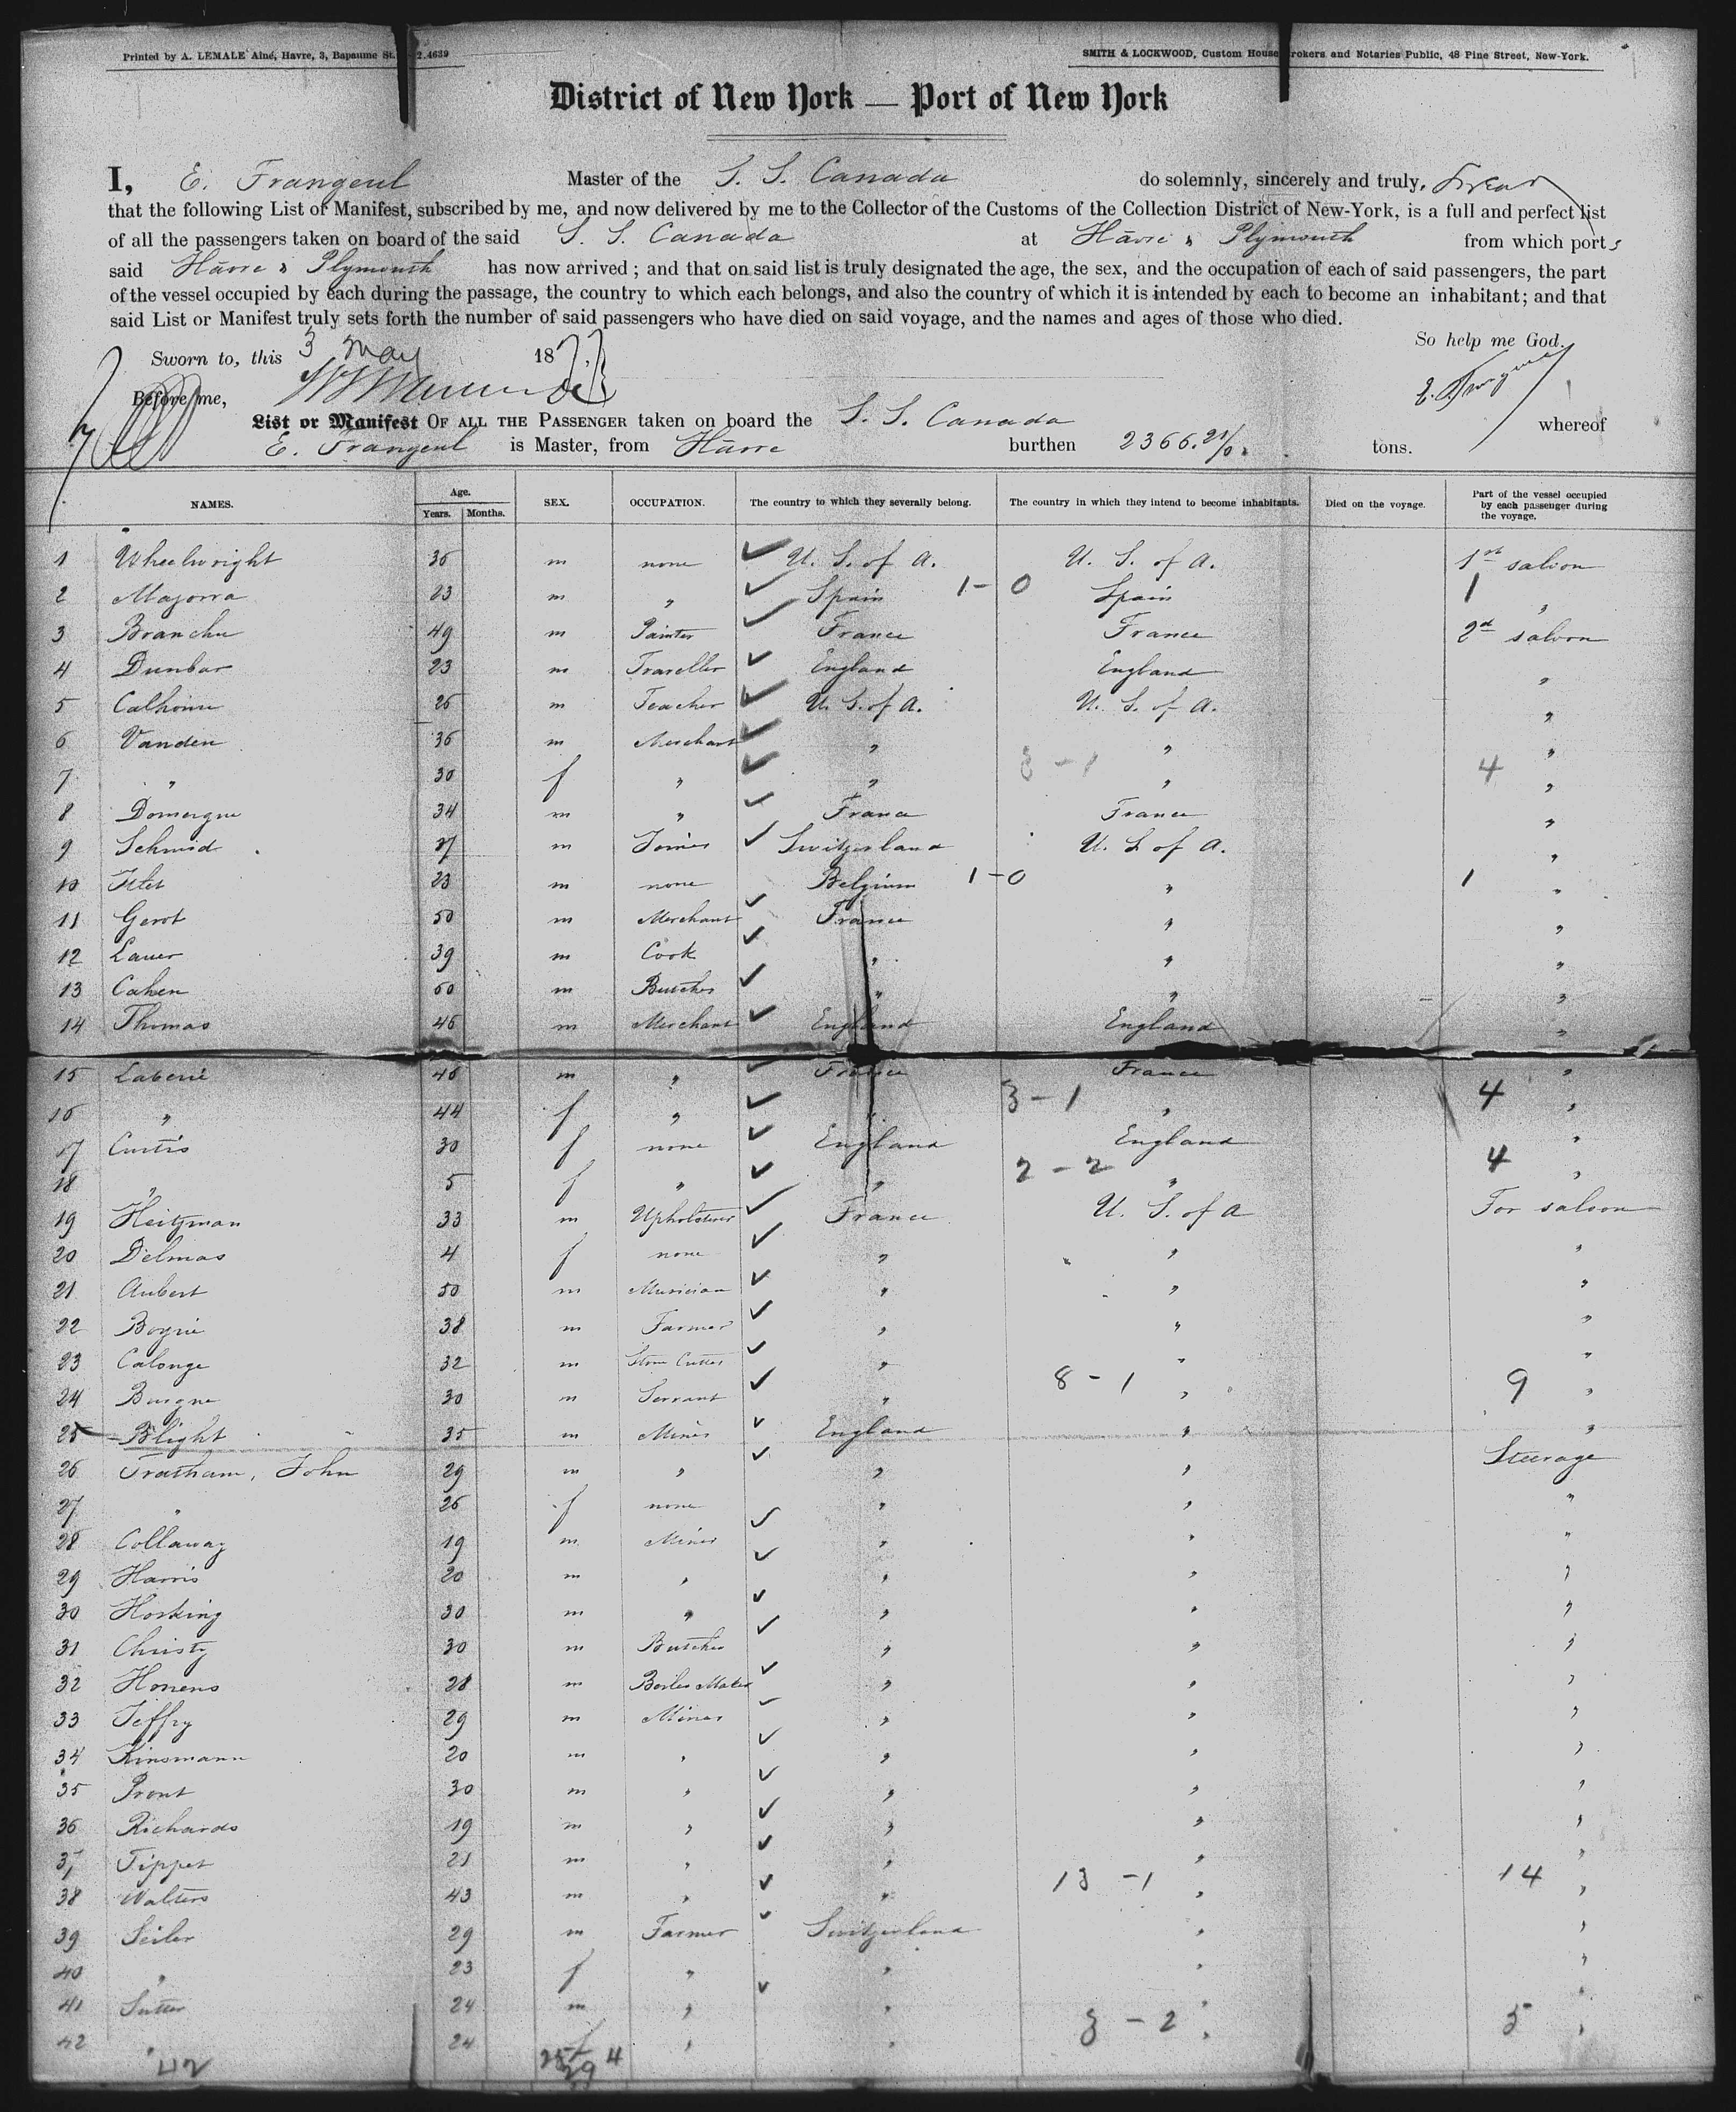 Printed by A. LEMALE Ainé, Havre, 3, Bapaume St. 2.4639
SMITH & LOCKWOOD, Custom House Brokers and Notaries Public, 48 Pine Street, New-York.
District of New York — Port of New York
I, E. Frangeul Master of the S. S. Canada do solemnly, sincerely and truly, swear
that the following List of Manifest, subscribed by me, and now delivered by me to the Collector of the Customs of the Collection District of New-York, is a full and perfect list
of all the passengers taken on board of the said S. S. Canada at Hâvre & Plymouth from which ports
said Hâvre & Plymouth has now arrived ; and that on said list is truly designated the age, the sex, and the occupation of each of said passengers, the part
of the vessel occupied by each during the passage, the country to which each belongs, and also the country of which it is intended by each to become an inhabitant; and that
said List or Manifest truly sets forth the number of said passengers who have died on said voyage, and the names and ages of those who died.
So help me God.
Sworn to, this 3 May 18
Before me,
E. Frangeul
List or Manifest OF ALL THE PASSENGER taken on board the S. S. Canada whereof
E. Frangeul is Master, from Hâvre burthen 2366. tons.
NAMES. Age. Years. Months. SEX. OCCUPATION. The country to which they severally belong. The country in which they intend to become inhabitants. Died on the voyage. Part of the vessel occupied by each passenger during the voyage.
1 Wheelwright 36 m none U. S. of A. U. S. of A. 1st saloon
2 Majorra 23 m " Spain 1-0 Spain 1 "
3 Branchu 49 m Painter France France 2d saloon
4 Dunbar 23 m Traveller England England "
5 Calhoun 26 m Teacher U. S. of A. U. S. of A. "
6 Vanden 36 m Merchant " " "
7 " 30 f " " 3-1 " 4 "
8 Domergue 34 m " France France "
9 Schmid 27 m Joiner Switzerland U. S. of A. "
10 23 m none Belgium 1-0 " 1 "
11 Gerot 50 m Merchant France " "
12 Lauer 39 m Cook " " "
13 Cahen 60 m Butcher " " "
14 Thomas 46 m Merchant England England "
15 Laberie 46 m " France France "
16 " 44 f " " 3-1 " 4 "
17 Curtis 30 f none England England "
18 " 5 f " " 2-2 " 4 "
19 Heitzman 33 m Upholsterer France U. S. of A For saloon
20 Delmas 4 f none " " "
21 Aubert 50 m Musician " " "
22 Boyrie 38 m Farmer " " "
23 Calonge 32 m Stone Cutter " " "
24 Burgue 30 m Servant " 8-1 " 9 "
25 Blight 35 m Miner England " "
26 Tratham, John 29 m " " " Steerage
27 " 26 f none " " "
28 Collaway 19 m Miner " " "
29 Harris 20 m " " " "
30 Hosking 30 m " " " "
31 Christy 30 m Butcher " " "
32 Honens 28 m Boiler Maker " " "
33 Jeffry 29 m Miner " " "
34 Kinsmann 20 m " " " "
35 Prout 30 m " " " "
36 Richards 19 m " " " "
37 Tippet 21 m " " " "
38 Walters 43 m " " 13-1 " 14 "
39 Seiler 29 m Farmer Switzerland " "
40 " 23 f " " " "
41 Sutter 24 m " " " "
42 " 24 f " " 3-2 " 5 "
42 29 4